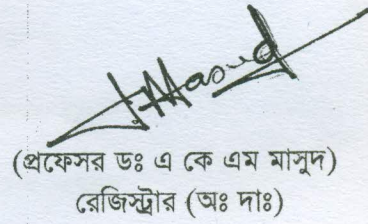 (প্রফেসর ডঃ এ কে এম মাসুদ)
রেজিস্ট্রার (অঃ দাঃ)